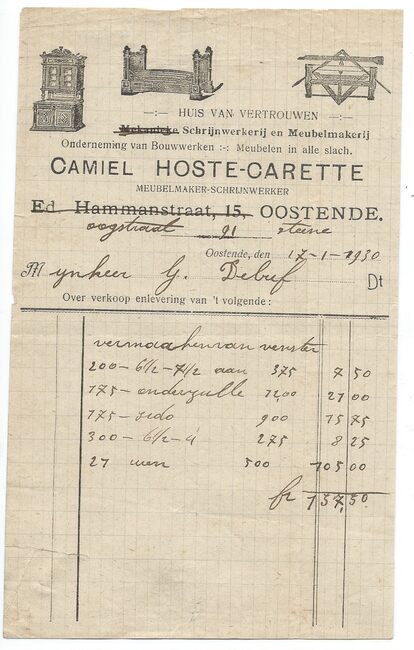 —:— HUIS VAN VERTROUWEN —:—
Mekanieke Schrijnwerkerij en Meubelmakerij
Onderneming van Bouwwerken :-: Meubelen in alle slach.
CAMIEL HOSTE-CARETTE
MEUBELMAKER-SCHRIJNWERKER
Ed. Hammanstraat, 15, OOSTENDE.
oogstraat 91 steene
Oostende, den 17-1-1930
Mynheer G. Debuf Dt
Over verkoop enlevering van 't volgende :
vermaaken van venster
200 - 6 1/2 - 7 1/2 aan 375 7 50
175 - onderzulle 12,00 21 00
175 - 900 15 75
300 - 6 1/2 - 4 275 8 25
21 uren 500 105 00
fr 157,50